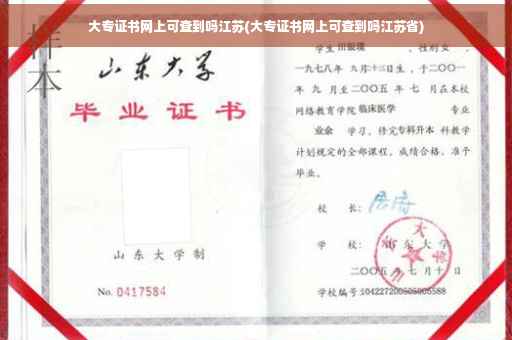 大专证书网上可查到吗江苏(大专证书网上可查到吗江苏省)
样本
山东大学
毕业证书
山东大学制
No. 0417584
学生田淑瑞，性别女，
一九七八年九月十三日生，于二〇〇一
年九月至二〇〇五年七月在本校
网络教育学院临床医学专业
业余学习，修完专科升本科教学
计划规定的全部课程，成绩合格，准予
毕业。
校长：
学校：山东大学
二〇〇五年七月十日
学校编号:104227200505005588